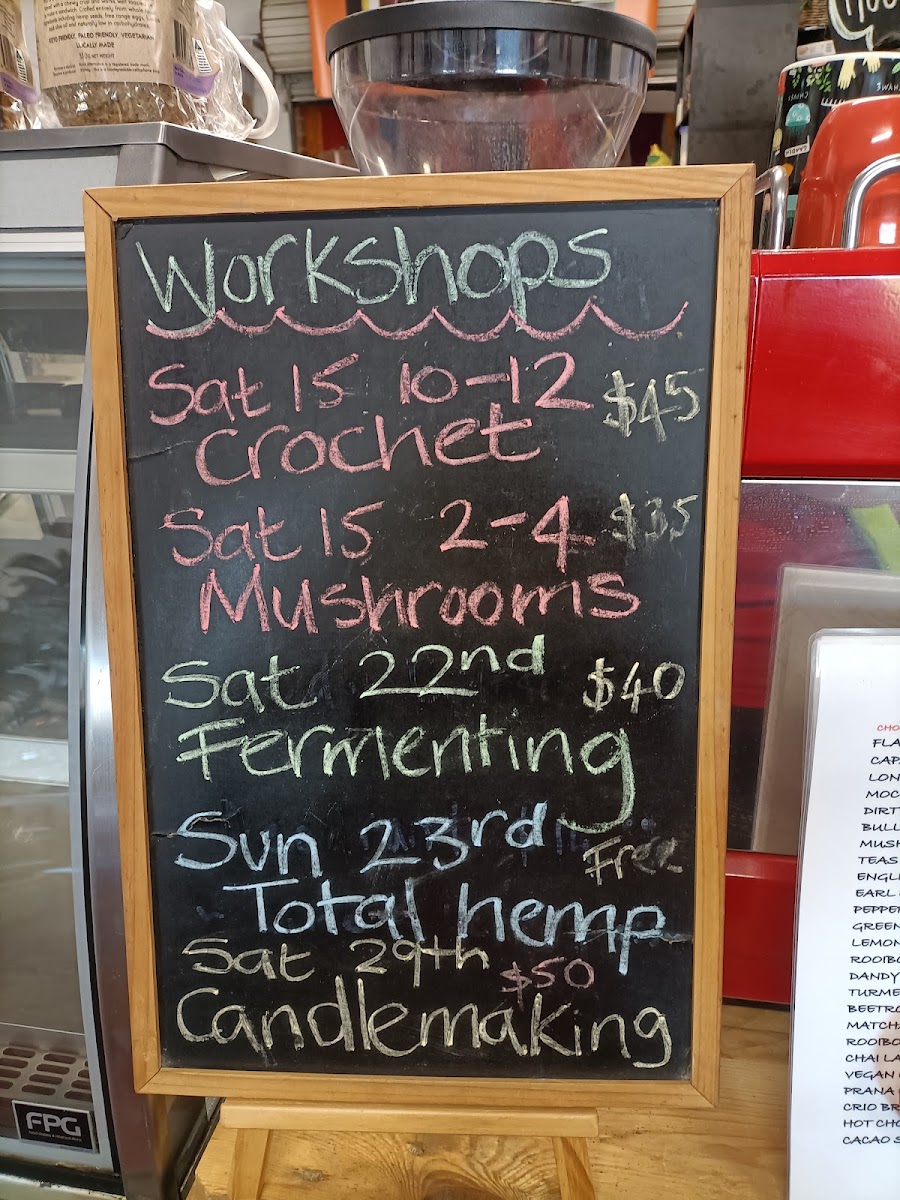 KETO FRIENDLY, PALEO FRIENDLY, VEGETARIAN
LOCALLY MADE
Workshops
Sat 15 10-12 $45
Crochet
Sat 15 2-4 $35
Mushrooms
Sat 22nd $40
Fermenting
Sun 23rd Free
Total hemp
Sat 29th $50
Candlemaking
FPG
CHO
FLA
CAP
LON
MOC
DIRT
BULL
MUSH
TEAS
ENGLI
EARL
PEPPER
GREEN
LEMON
ROOIBO
DANDY
TURME
BEETRO
MATCHA
ROOIBO
CHAI LA
VEGAN
PRANA
CRIO BR
HOT CHO
CACAO S